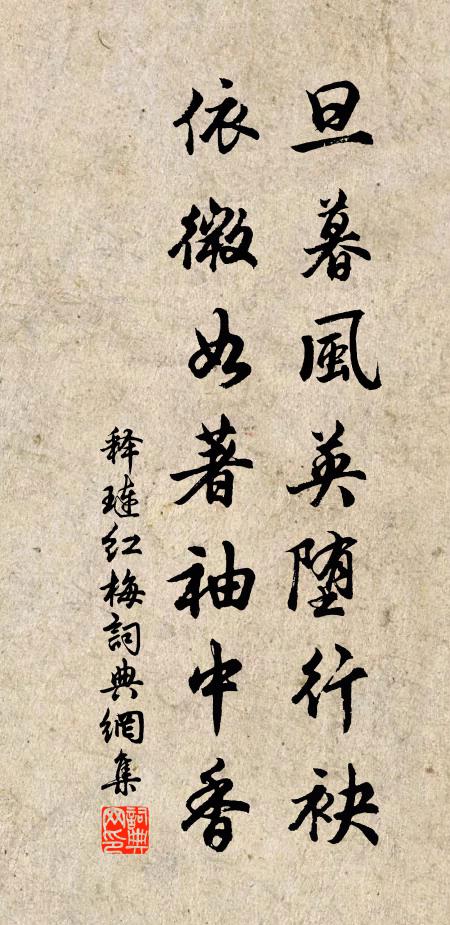 旦暮風英堕行袂
依微如著袖中香
释琏红梅詞典網集
詞典網印